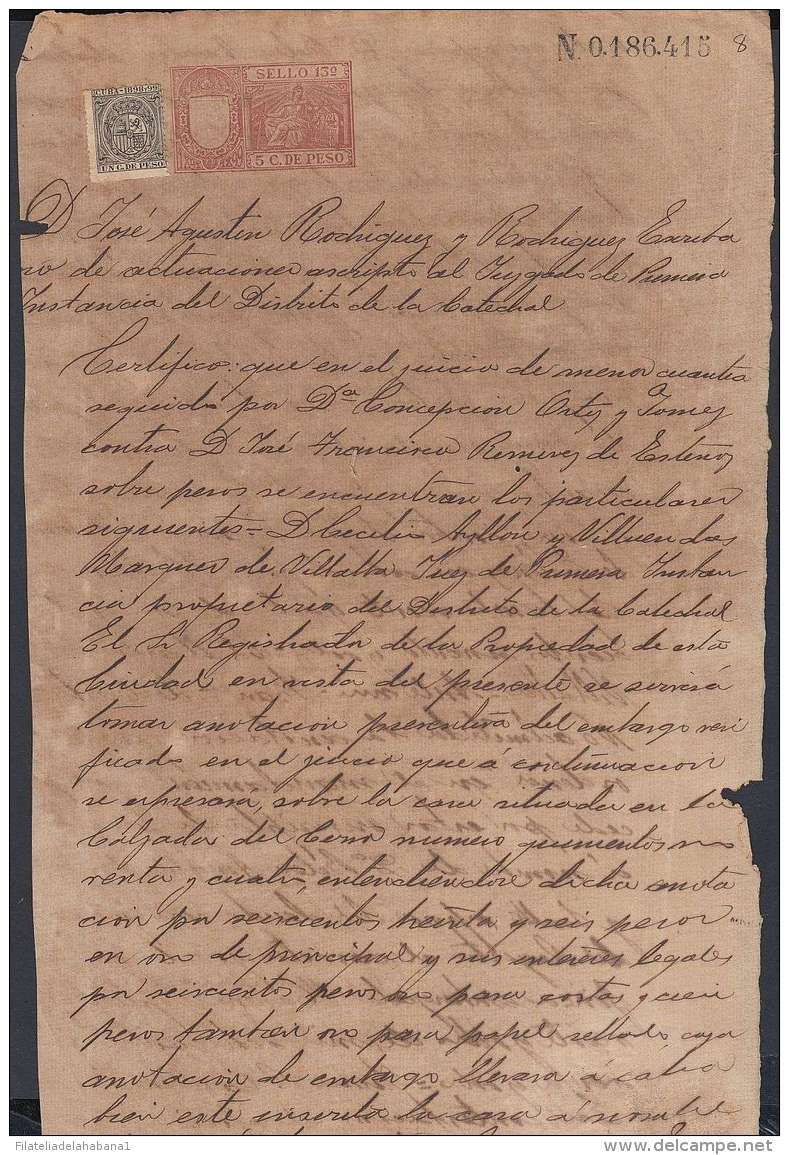 N. 0.186.415 8
CUBA-1898-99
UN C. DE PESO
SELLO 13º
5 C. DE PESO
D José Agustin Rodriguez y Rodriguez Escriba
no de actuaciones ascripto al Juzgado de Primera
Instancia del Distrito de la Catedral
Certifico: que en el juicio de menor cuantia
seguido por Dª Concepcion Ortiz y Gomez
contra D José Francisco Remirez de Estenoz
sobre pesos se encuentran los particulares
siguientes = D Cecilio Ayllon y Villuendas
Marques de Villalta Juez de Primera Instan
cia propietario del Distrito de la Catedral
El Sr Registrador de la Propiedad de esta
Ciudad en vista del presente se servirá
tomar anotacion preventiva del embargo veri
ficado en el juicio que á continuacion
se expresara, sobre la casa situada en la
Calzada del Cerro numero quinientos no
venta y cuatro, entendiendose dicha anota
cion por seiscientos treinta y seis pesos
en oro de principal y sus intereses legales
por seiscientos pesos oro para costas y cien
pesos tambien oro para papel sellado cuya
anotacion de embargo llevara á cabo si
bien este inscrita la casa á nombre
Filateliadelahabana1
©delcampe.net